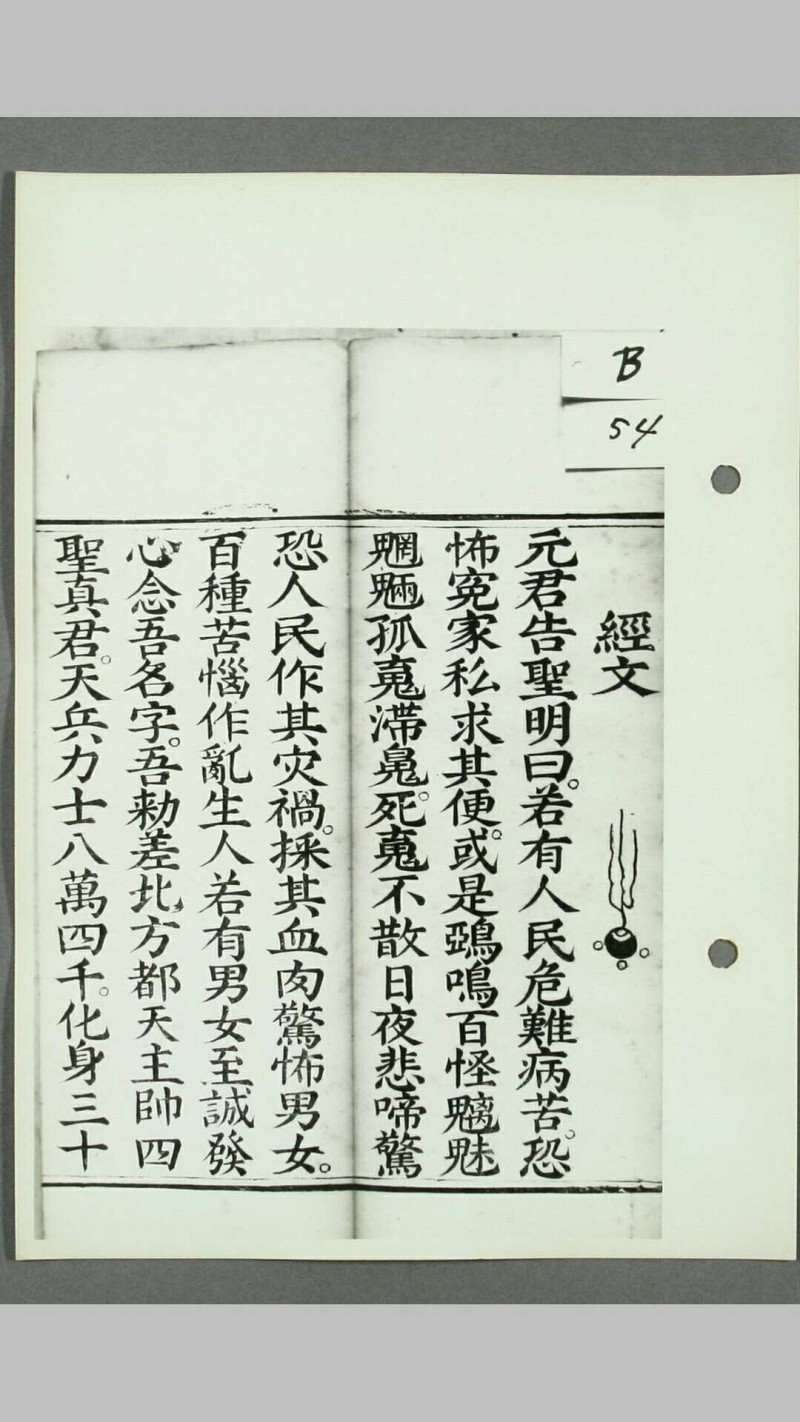 B
54
經文
元君告聖明曰。若有人民危難病苦。恐
怖冤家私求其便。或是鵶鳴百怪魑魅
魍魎孤䰟滯鬼。死䰟不散日夜悲啼驚
恐人民作其灾禍。採其血肉驚怖男女。
百種苦惱作亂生人若有男女至誠發
心念吾名字。吾勑差北方都天主帥四
聖真君。天兵力士八萬四千。化身三十